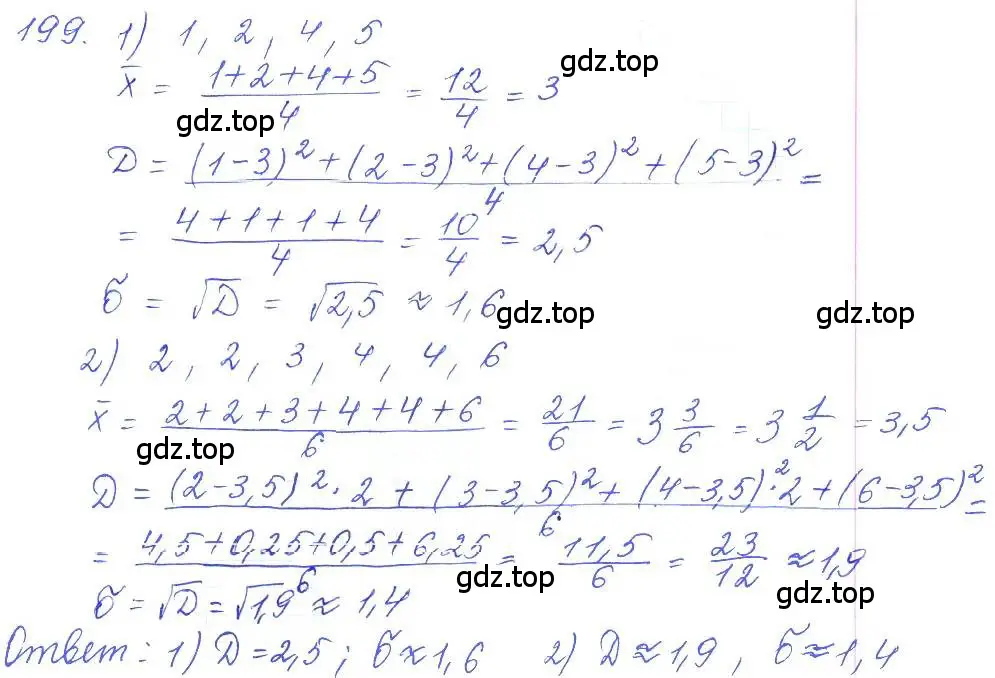 199. 1) 1, 2, 4, 5
x̄ = (1+2+4+5)/4 = 12/4 = 3
gdz.top
gdz.top
D = ((1-3)² + (2-3)² + (4-3)² + (5-3)²)/4 =
= (4+1+1+4)/4 = 10/4 = 2,5
σ = √D = √2,5 ≈ 1,6
gdz.top
gdz.top
2) 2, 2, 3, 4, 4, 6
x̄ = (2+2+3+4+4+6)/6 = 21/6 = 3 3/6 = 3 1/2 = 3,5
gdz.top
D = ((2-3,5)²·2 + (3-3,5)² + (4-3,5)²·2 + (6-3,5)²)/6 =
= (4,5+0,25+0,5+6,25)/6 = 11,5/6 = 23/12 ≈ 1,9
gdz.top
gdz.top
σ = √D = √1,9 ≈ 1,4
Ответ: 1) D = 2,5; σ ≈ 1,6 2) D ≈ 1,9, σ ≈ 1,4